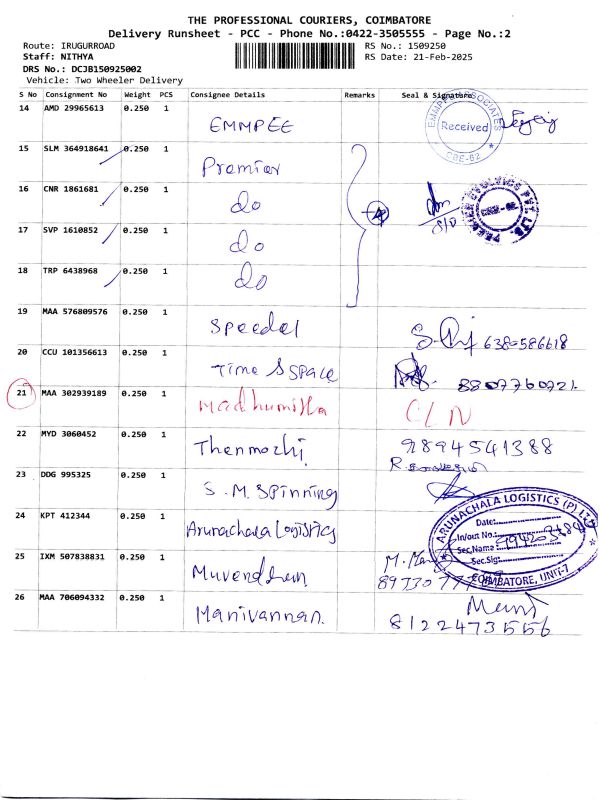 THE PROFESSIONAL COURIERS, COIMBATORE
Delivery Runsheet - PCC - Phone No.:0422-3505555 - Page No.:2
Route: IRUGURROAD RS No.: 1509250
Staff: NITHYA RS Date: 21-Feb-2025
DRS No.: DCJB150925002
Vehicle: Two Wheeler Delivery
S No Consignment No Weight PCS Consignee Details Remarks Seal & Signature
14 AMD 29965613 0.250 1 EMMPEE
Received
CBE-62
15 SLM 364918641 0.250 1 Premier
16 CNR 1861681 0.250 1 do
17 SVP 1610852 0.250 1 do
18 TRP 6438968 0.250 1 do
19 MAA 576809576 0.250 1 Speedel
20 CCU 101356613 0.250 1 Time S SPACE 8807760721.
21 MAA 302939189 0.250 1 Madhumitha CLN
22 MYD 3060452 0.250 1 Thenmozhi 9894541388
23 DDG 995325 0.250 1 S.M. SPinning
24 KPT 412344 0.250 1 Arunachala Logistics
ARUNACHALA LOGISTICS (P) LTD
Date:
In/out No.:
Sec.Name:
Sec.Sig:
COIMBATORE, UNIT-7
25 IXM 507838831 0.250 1 Muvendhen
26 MAA 706094332 0.250 1 Manivannan. Mani
8122473556